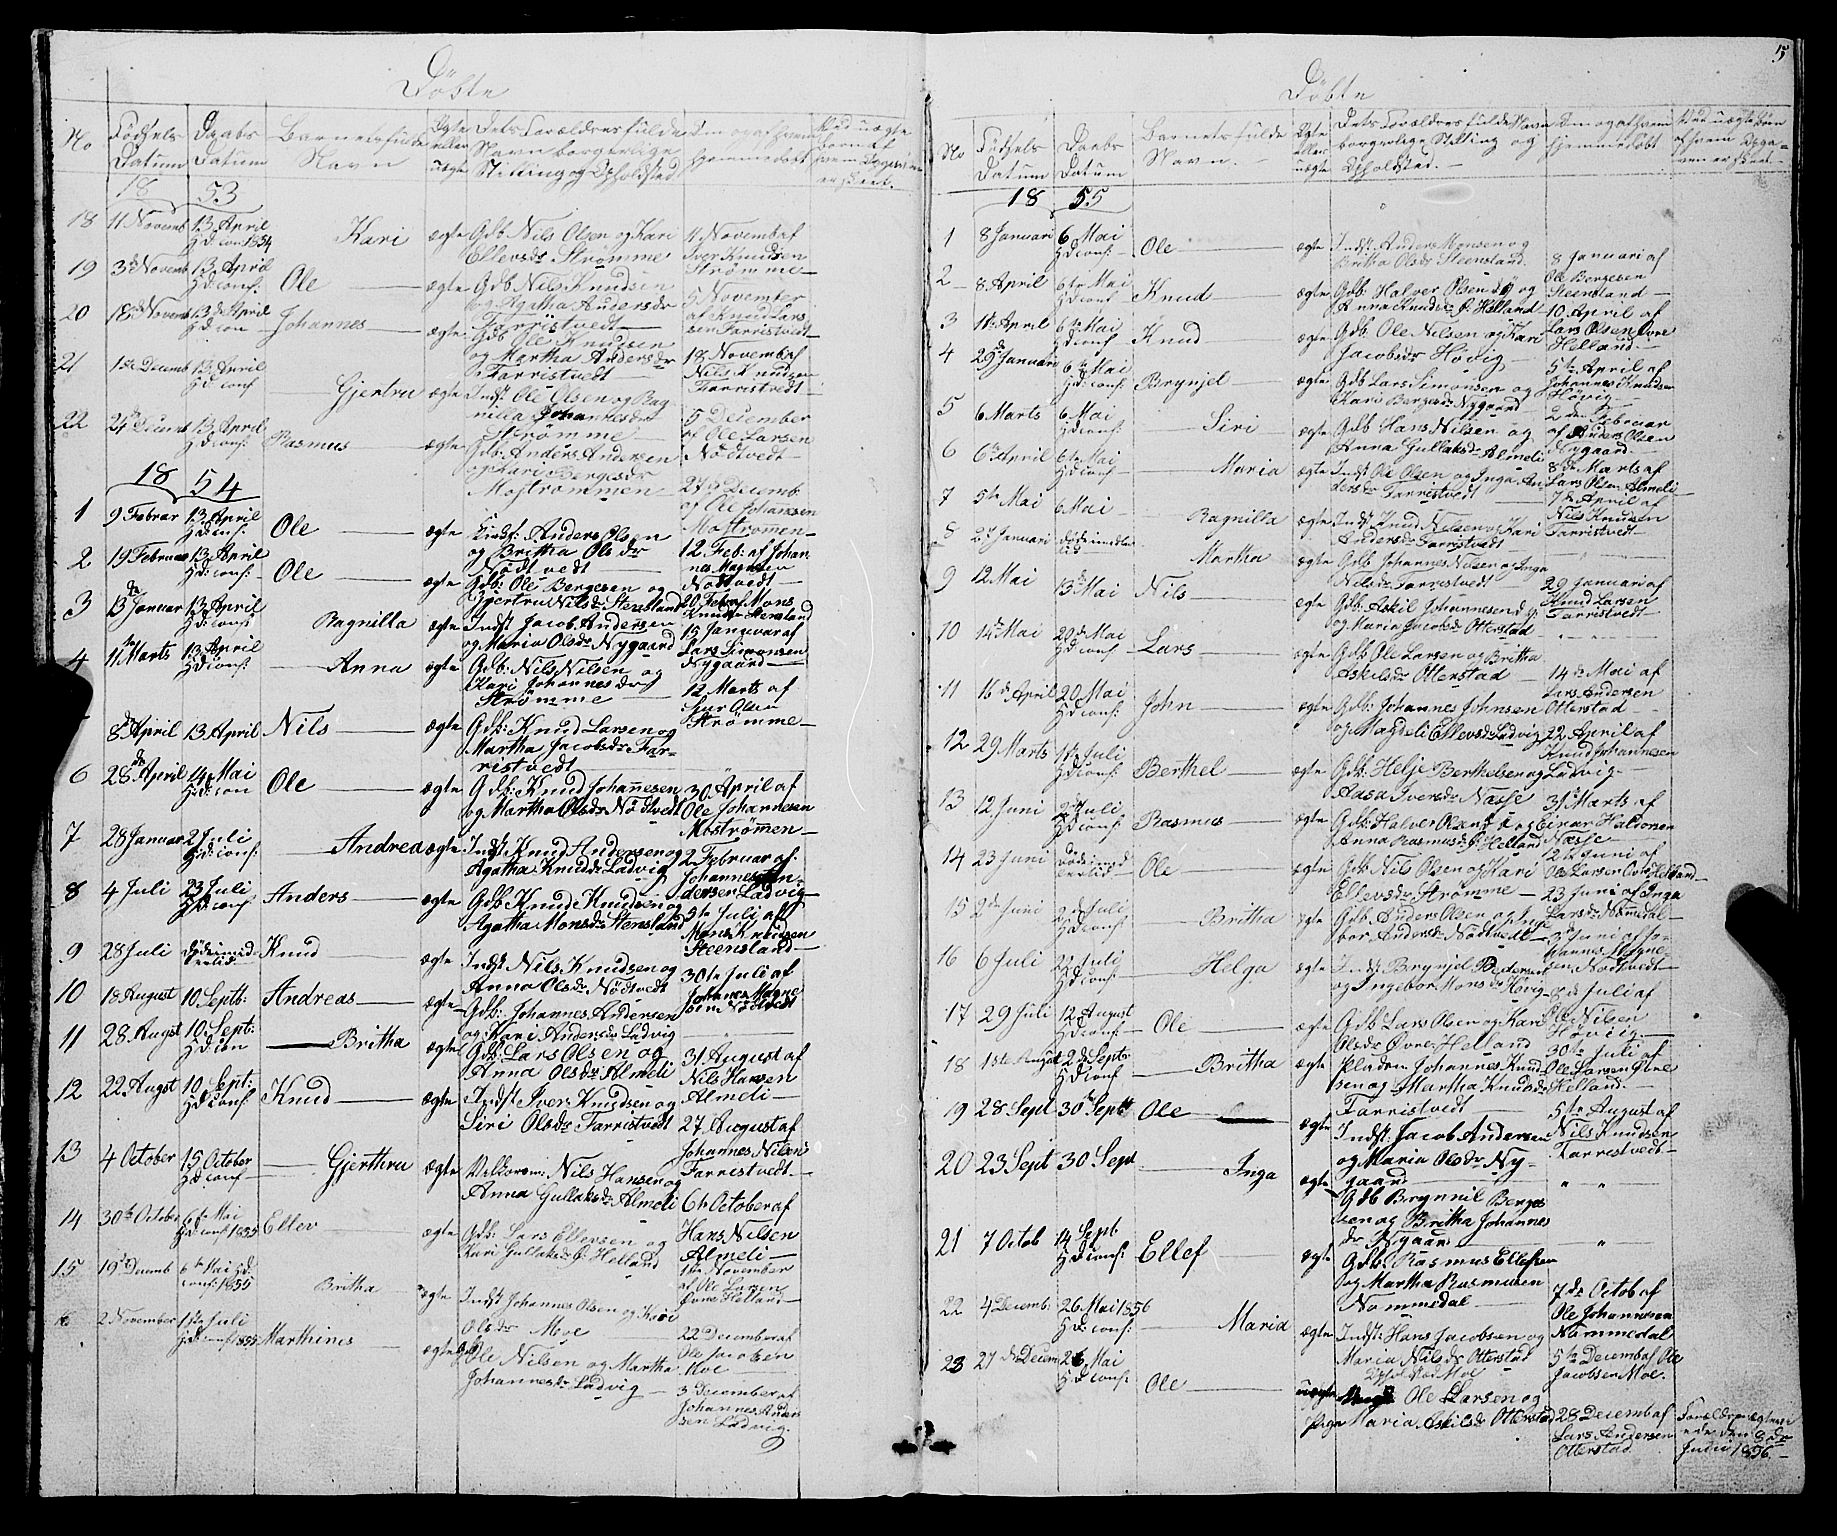 Döbte
No
Födsels Datum
Daabs Datum
Barnets fulde Navn
Ægte eller uægte
Dets Forældres fulde Navn borgerlige Stilling og Opholdsted
Om og af hvem hjemmedøbt
18 53
18 11 Novemb 13 April Hd: con 1854 Kari ægte Gdb. Nils Olsen og Kari
Ellevsdr Strømme
11 Novemb af
Iver Knudsen
Strømme
19 3de Novemb 13 April Hd conf. Ole ægte Gdb. Nils Knudsen
og Agatha Andersdr
Farristvedt
5 November
af Knud Lars
sen Farristvedt
20 18de Novemb 13de April Hd con Johannes ægte Gdb Ole Knudsen
og Martha Andersdr
Farristvedt
18 Novemb af
Nils Knudsen
Farristvedt
21 1ste Decemb 13 April Hd conf Gjertru ægte Indst Ole Olsen og Rag
nilla Johannesdr
Strømme
5 December
af Ole Larsen
Nödtvedt
22 24 Decemb 13 April Hd conf: Rasmus ægte Gdb. Anders Andersen
og Kari Bergesdr
Mostrømmen
27de Decemb
af Ole Johansen
Mostrømen
18 54
1 9 Febrar 13 April Hd conf: Ole ægte Anders Olsen
og Britha Olsdr
Nödtvedt
12 Feb: af Johan
nes Magnesen
Nödtvedt
2 19 Februar 13 April Hd: conf: Ole ægte Gdb: Ole Bergesen og
Gjertru Nilsdr Stensland
20 Feb af Mons
Knudsr Stensland
3 13de Januar 13 April Hd conf: Ragnilla ægte Indst Jacob Andersen
og Maria Olsdr Nygaard
15 Januvar af
Lars Simonsen
Nygaard
4 11te Marts 13 April Hd conf: Anna ægte Gdb. Nils Nilsen og
Kari Johannesdr
Strømme
12 Marts af
Gjur Olsen
Strømme
8de April 13 April Nils ægte Gdb: Knud Larsen og
Martha Jacobsdr Far-
ristvedt
6 28de April 14 Mai Hd: con Ole ægte Gdb: Knud Johannesen
og Martha Olsdr Nödtvedt
30 April af
Ole Johannesen
Mostrømmen
7 28 Januar 2 Juli Hd: conf: Andrea ægte Indst Knud Andersen og
Agatha Knudsdr Ladvig
2 Februar af
Johannes An-
dersen Ladvig
8 4 Juli 23 Juli Hd conf: Anders ægte Gdb Knud Knudsen og
Agatha Monsdr Stensland
5te Juli af
Mons Knudsen
Steensland
9 28 Juli Knud ægte Indst Nils Knudsen og
Anna Olsdr Nödtvedt
30te Juli af
Johannes Magne
sen Nödtvedt
10 18 August 10 Septb: Andreas ægte Gdb: Johannes Andersen
og Kari Andersdr Ladvig
11 28 Augst 10 Sept: Hd con Britha ægte Gdb: Lars Olsen og
Anna Olsdr Almeli
31 August af
Nils Hansen
Almeli
12 22 Augst 10 Sept: Hd conf: Knud ægte Indst Iver Knudsen og
Siri Olsdr Farristvedt
27 August af
Johannes Nilsen
Farrestvedt
13 4 October 15 October Hd conf Gjerthru ægte Nils Hansen og
Anna Gullaksdr Almeli
6te October af
Hans Nilsen
Almeli
14 30te October 6te Mai Hd conf 1855 Ellev ægte Gdb: Lars Ellevsen og
Kari Gullaksdr Ö: Helland
1ste November
af Ole Larsen
Övre Helland
15 19de Decemb 6te Mai Hd conf: 1855 Britha ægte Indst Johannes Olsen og Kari
Olsdr Moe
22 December af
Ole Jacobsen
Moe
16 2 November 1ste Juli Hd conf 1855 Marthines ægte Gdb Ole Nilsen og Martha
Johannesdr Ladvig
3 December af
Johannes Ander
sen Ladvig.
5
Döbte
No
Födsels Datum
Daabs Datum
Barnets fulde Navn.
Ægte eller uægte
Dets Forældres fulde Navn borgerlige Stilling og Opholdsted.
Om og af hvem hjemmedöbt
18 55
1 8 Januari 6 Mai Hd conf: Ole ægte Indst Anders Monsen og
Britha Olsdr Steensland
8 Januari af
Ole Bergesen
Steensland
2 8 April 6te Mai Hd conf Knud ægte Gdb: Halver Olsen og
Anna Knudsdr Ö: Helland
10 April af
Lars Olsen Övre
Helland
3 11te April 6te Mai Hd conf: Knud ægte Gdb. Ole Nilsen og Kari
Jacobsdr Hövig
5te April af
Johannes Knudsen
Hövig
4 29de Januari 6te Mai Hd: conf: Brynjel ægte Gdb Lars Simonsen og
Kari Bergesdr Nygaard
2den Februar
af Anders Olsen
Nygaard
5 6 Marts 6 Mai Hd conf: Siri ægte Gdb Hans Nilsen og
Anna Gullaksdr Almeli
8de Marts af
Lars Olsen Almeli
6 6te April 6te Mai Hd: conf Maria ægte Indst Ole Olsen og Inga An
dersdr Farristvedt
7de April af
Nils Knudsen
Farristvedt
7 5te Mai 6 Mai Ragnilla ægte Indst Knud Nilsen og Kari
Andersdr Farristvedt
8 27 Januari Martha ægte Gdb Johannes Nilsen og Inga
Nilsdr Farrestvedt
29 Januari af
Knud Larsen
Farristvedt
9 12 Mai 13de Mai Nils ægte Gdb: Askil Johannesen
og Maria Jacobsdr Otterstad
10 14de Mai 20de Mai Hd conf Lars ægte Gdb Ole Larsen og Britha
Askilsdr Otterstad
14de Mai af
Lars Andersen
Otterstad
11 16de April 20 Mai Hd conf: John ægte Gdb: Johannes Johnsen
og Magdeli Ellevsdr Ladvig
22 April af
Knud Johannesen
Ladvig
12 29 Marts 1ste Juli Hd conf: Berthel ægte Gdb: Helje Berthelsen og
Aasa Iversdr Næsse
31te Marts af
Einar Haldorsen
Næsse
13 12 Juni 2den Juli Hd conf: Rasmus ægte Gdb: Halver Olsen og
Anna Rasmusdr Ö: Helland
12te Juni af
Ole Larsen Övre Helland
14 23 Juni Ole ægte Gdb. Nils Olsen og Kari
Ellevsdr Strømme
23 Juni af Inga
Larsdr Nammedal
15 2de Juni 2de Juli Hd conf: Britha ægte Gdb: Anders Olsen og Inge
bor Andersdr Nödtvedt
3de Juni af Jo-
hannes Magne-
sen Nödtvedt
16 6 Juli 22 Juli Hd conf: Helga ægte Indst Brynjel Pedersen
og Ingebor Monsdr Hövig
8de Juli af
Ole Nilsen
Hövig
17 29 Juli 12 August Hd conf Ole ægte Gdb: Lars Olsen og Kari
Olsdr Övre Helland
30te Juli af
Ole Larsen Övre
Helland
18 1ste August 2de Sept: Hd conf Britha ægte Johannes Knud
sen og Martha Knudsdr
Farristvedt
5te August af
Nils Knudsen
Farrestvedt
19 28 Sept 30te Septb Ole ægte Indst. Jacob Andersen
og Maria Olsdr Ny-
gaard
20 23 Sept 30 Sept Inga ægte Gdb Brynnil Berges
sen og Britha Johannes
dr Nygaard
21 7 Octob 14 Sept Hd conf: Ellef ægte Gdb: Rasmus Ellefsen
og Martha Rasmusen
Nammedal
7de Octob af
Ole Johannesen
Nammedal
22 4 Decemb: 26 Mai 1856 Hd: conf: Maria ægte Indst: Hans Jacobsen og
Maria Nilsdr Otterstad
Opholdsted Moe
5te Decemb af Ole
Jacobsen Moe.
23 27de Decem 26 Mai Hd conf: Ole uægte Ole Larsen og
Pige Maria Askilsdr Otterstad
28 Decemb af
Lars Andersen
Otterstad
Forældrene ægtevie
ede den 8de
Juni 1856.